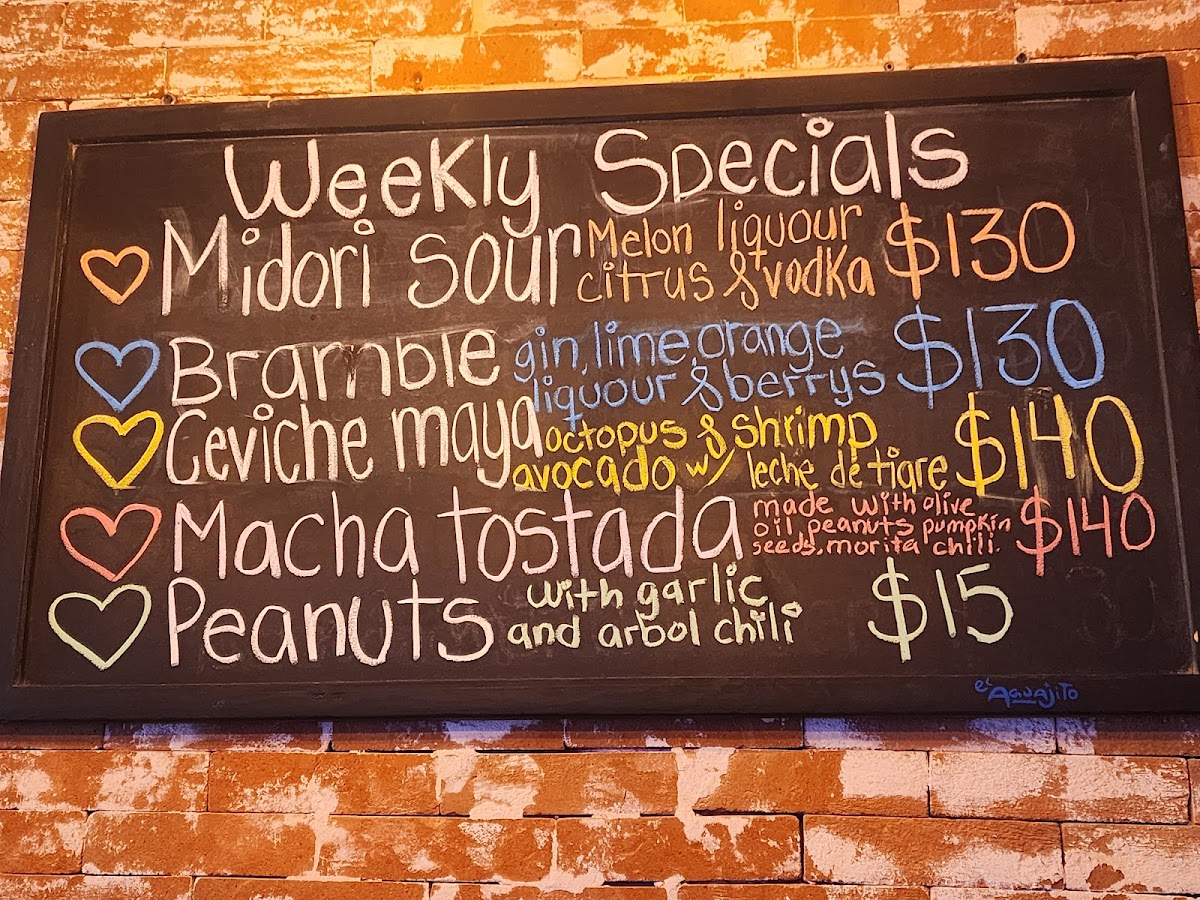 Weekly Specials
Midori sour Melon liquour $130
citrus & vodka
Bramble gin, lime, orange $130
liquour & berrys
Ceviche maya octopus & shrimp $140
avocado w/ leche de tigre
Macha tostada made with olive $140
oil, peanuts pumpkin
seeds, morita chili.
Peanuts with garlic $15
and arbol chili
el Aguajito